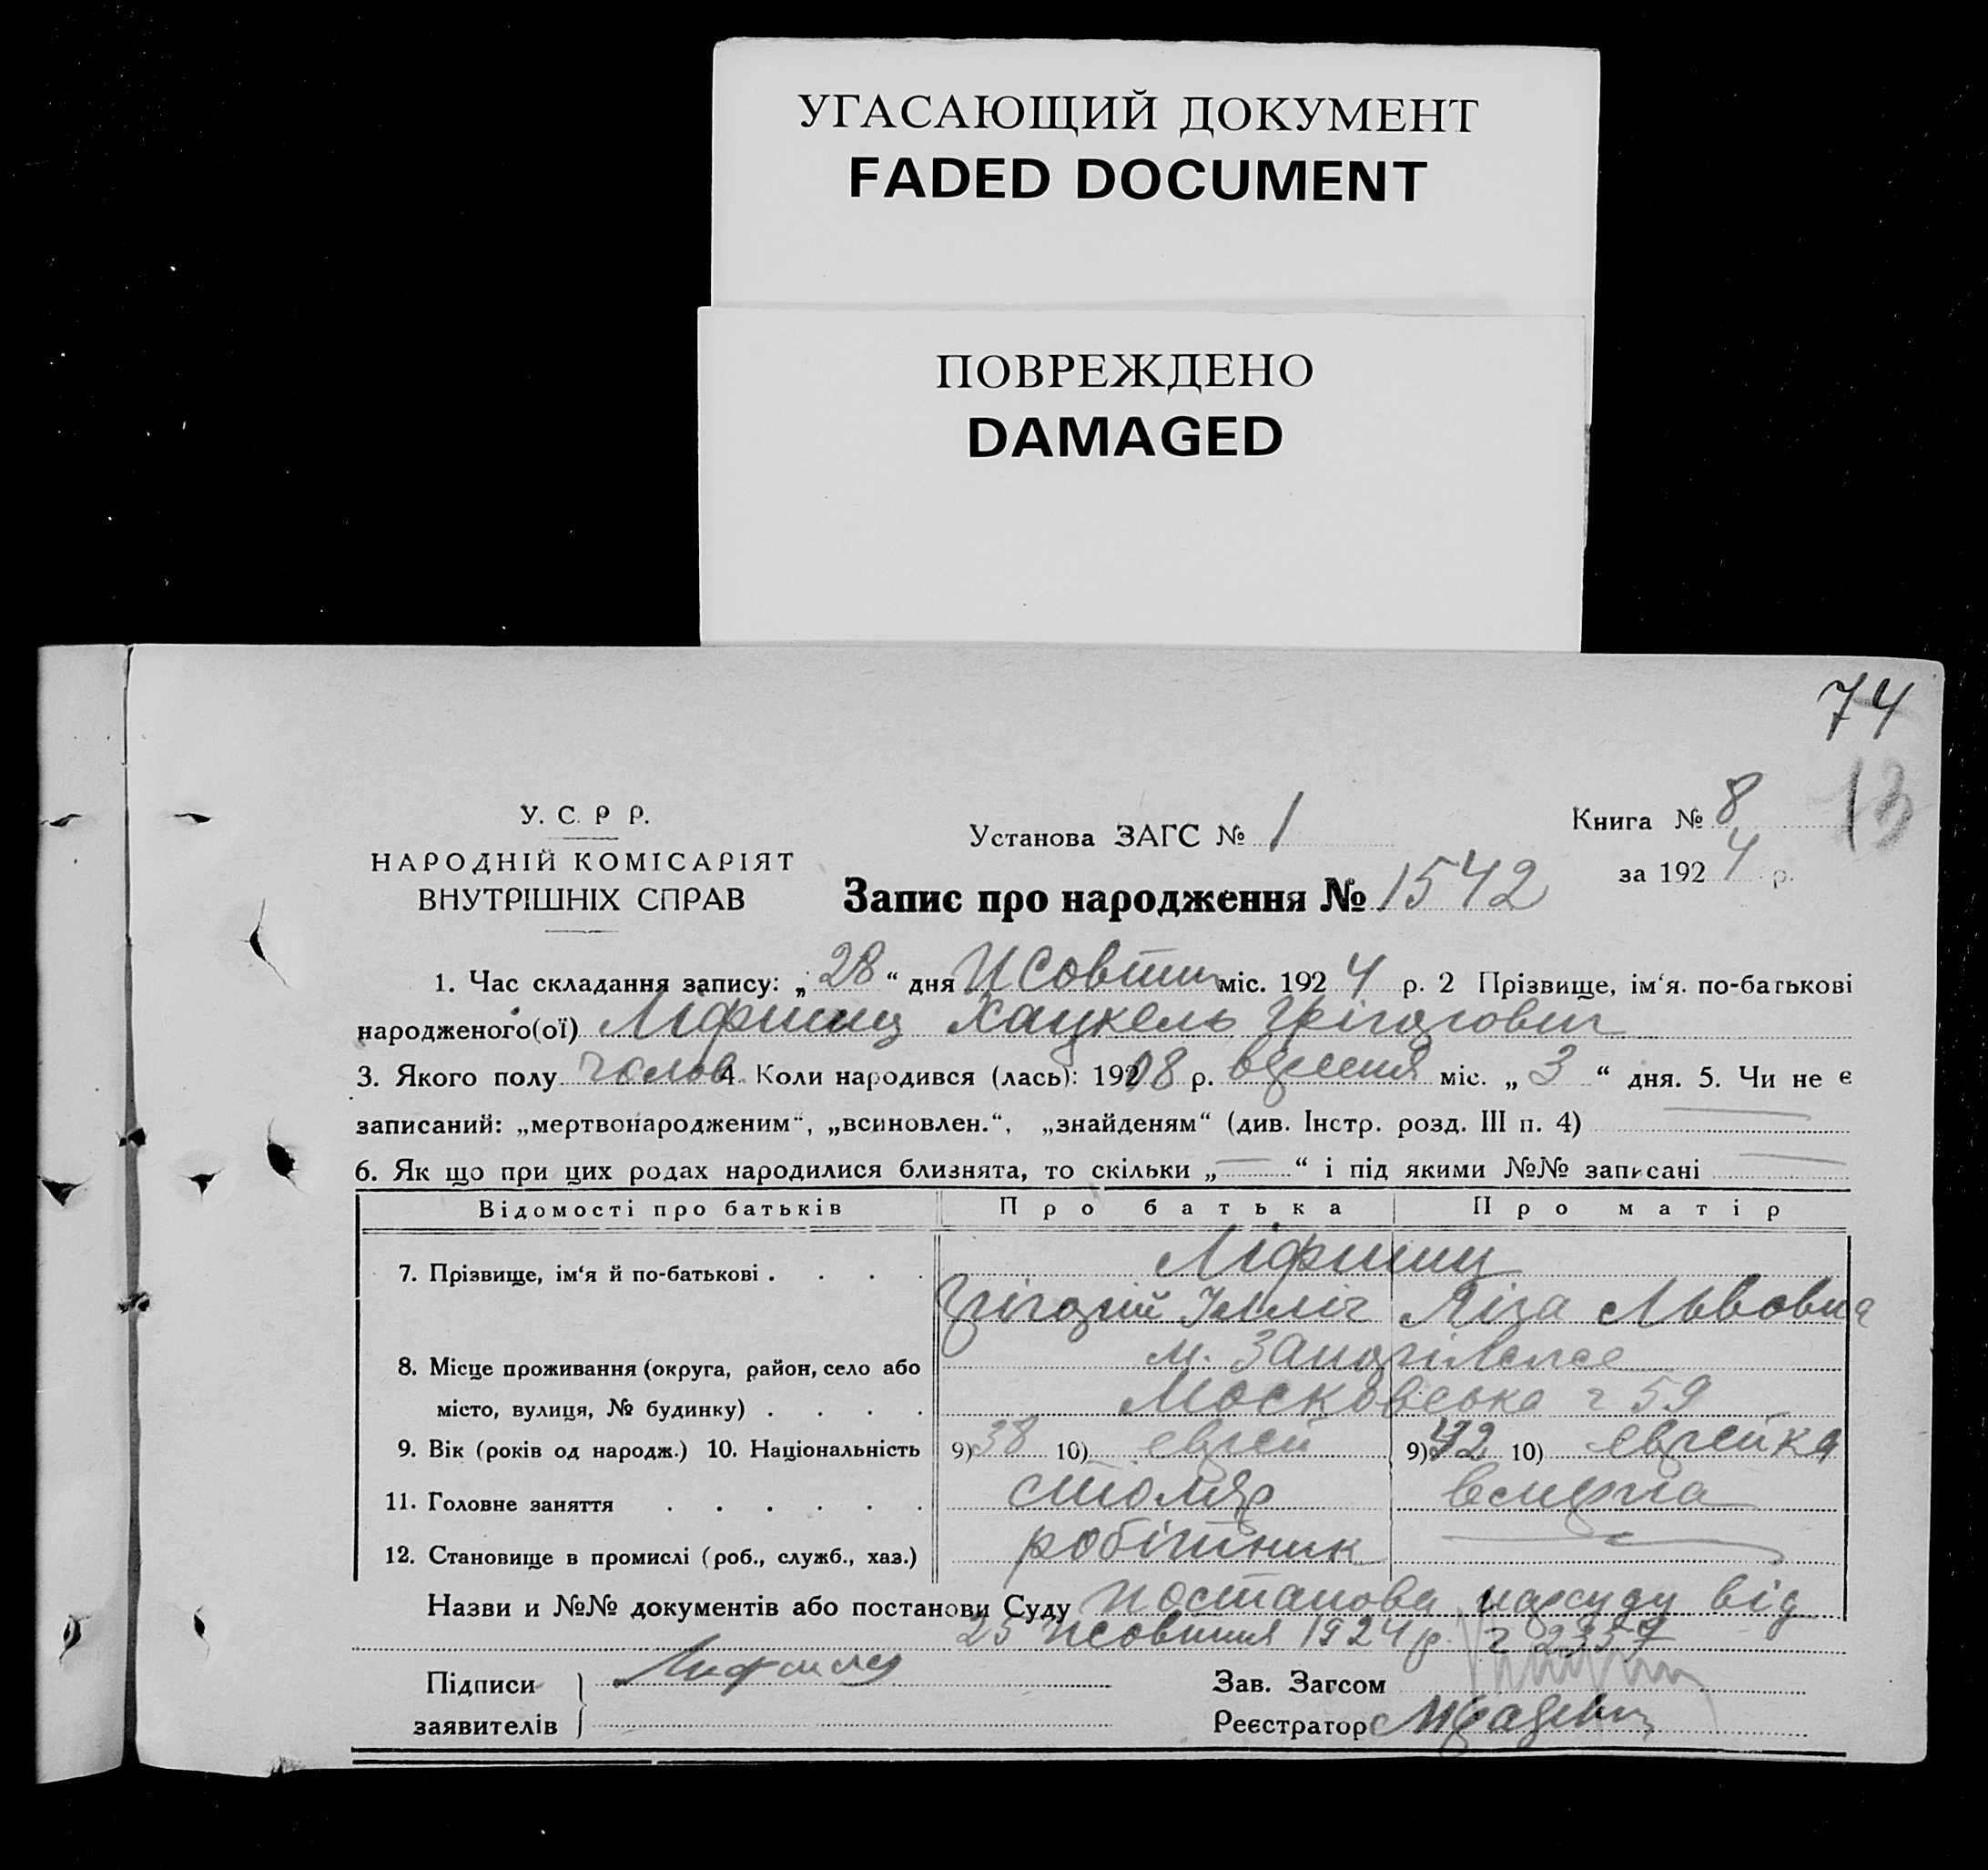 УГАСАЮЩИЙ ДОКУМЕНТ
FADED DOCUMENT
ПОВРЕЖДЕНО
DAMAGED
74
13
У. С. Р Р.
НАРОДНІЙ КОМІСАРІЯТ
ВНУТРІШНІХ СПРАВ
Установа ЗАГС № 1
Книга № 8
за 1924 р.
Запис про народження № 1542
1. Час складання запису: „28“ дня Жовтня міс. 1924 р. 2 Прізвище, ім‘я. по-батькові
народженого(ої) Ліфшиц Хацкель Грігорович
3. Якого полу чолов. 4. Коли народився (лась): 1908 р. вересня міс. „3“ дня. 5. Чи не є
записаний: „мертвонародженим“, „всиновлен.“, „знайденям“ (див. Інстр. розд. III п. 4)
6. Як що при цих родах народилися близнята, то скільки „—“ і під якими №№ записані —
Відомості про батьків Про батька Про матір
7. Прізвище, ім‘я й по-батькові . . . . Ліфшиц
Грігорій Ілліч Ліза Львовна
8. Місце проживання (округа, район, село або м. Запоріжжє
місто, вулиця, № будинку) . . . . Московська ч 59
9. Вік (років од народж.) 10. Національність 9) 38 10) еврей 9) 42 10) єврейка
11. Головне заняття . . . . . . столяр
12. Становище в промислі (роб., служб., хаз.) робітник —
Назви и №№ документів або постанови Суду Постанова нарсуду від
25 жовтня 1924 р. ч 2357
Підписи
заявителів
Лифшиц
Зав. Загсом
Реєстратор